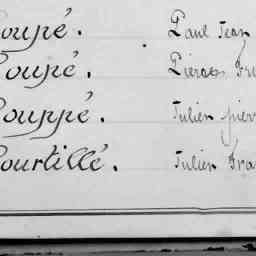 oupé. Paul Jean
oupé. Pierre
ouppé. Julien pierr
ourtillé. Julien Fra